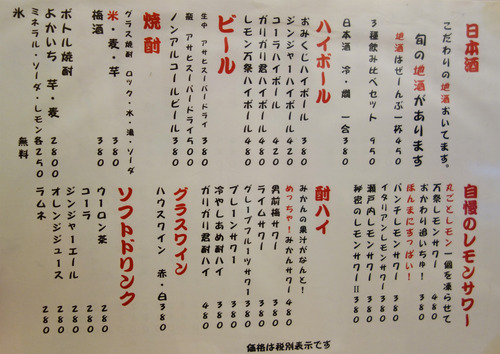 日本酒
こだわりの地酒おいてます。
旬の地酒があります
地酒はぜーんぶ一杯 450
3種飲み比べセット 950
日本酒 冷・燗 一合 380
ハイボール
おみくじハイボール 380
ジンジャーハイボール 420
コーラハイボール 420
ガリガリ君ハイボール 480
レモン万祭ハイボール 480
ビール
生中 アサヒスーパードライ 380
瓶 アサヒスーパードライ 500
ノンアルコールビール 380
焼酎
グラス焼酎 ロック・水・湯・ソーダ
米・麦・芋 380
梅酒 380
ボトル焼酎
よかいち 芋・麦 2800
ミネラル・ソーダ・レモン各 250
氷 無料
自慢のレモンサワー
丸ごとレモン一個を凍らせて
万祭レモンサワー 480
おかわり追いちゅ! 380
ほんまにすっぱい!
パンチレモンサワー 380
イタリアンレモンサワー 380
瀬戸内レモンサワー 380
秘密のレモンサワーII 380
酎ハイ
みかんの果汁がなんと!
めっちゃ!みかんサワー 480
男前梅サワー 380
ライムサワー 380
グレープフルーツサワー 380
プレーンサワー 380
冷やしあめ酎ハイ 380
ガリガリ君酎ハイ 480
グラスワイン
ハウスワイン 赤・白 380
ソフトドリンク
ウーロン茶 280
コーラ 280
ジンジャーエール 280
オレンジジュース 280
ラムネ 280
価格は税別表示です